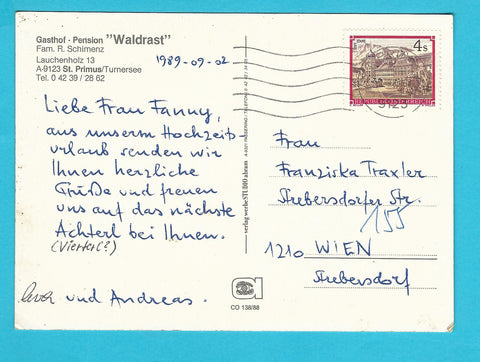 Gasthof - Pension "Waldrast"
Fam. R. Schimenz
Lauchenholz 13
A-9123 St. Primus/Turnersee
Tel. 0 42 39 / 28 62
1989-09-02
Liebe Frau Fanny,
aus unserm Hochzeits-
urlaub senden wir
Ihnen herzliche
Grüße und freuen
uns auf das nächste
Achterl bei Ihnen.
(Viertel?)
und Andreas.
CO 138/88
4 s
REPUBLIK ÖSTERREICH
Frau
Franziska Traxler
Strebersdorfer Str.
155
1210 WIEN
Strebersdorf